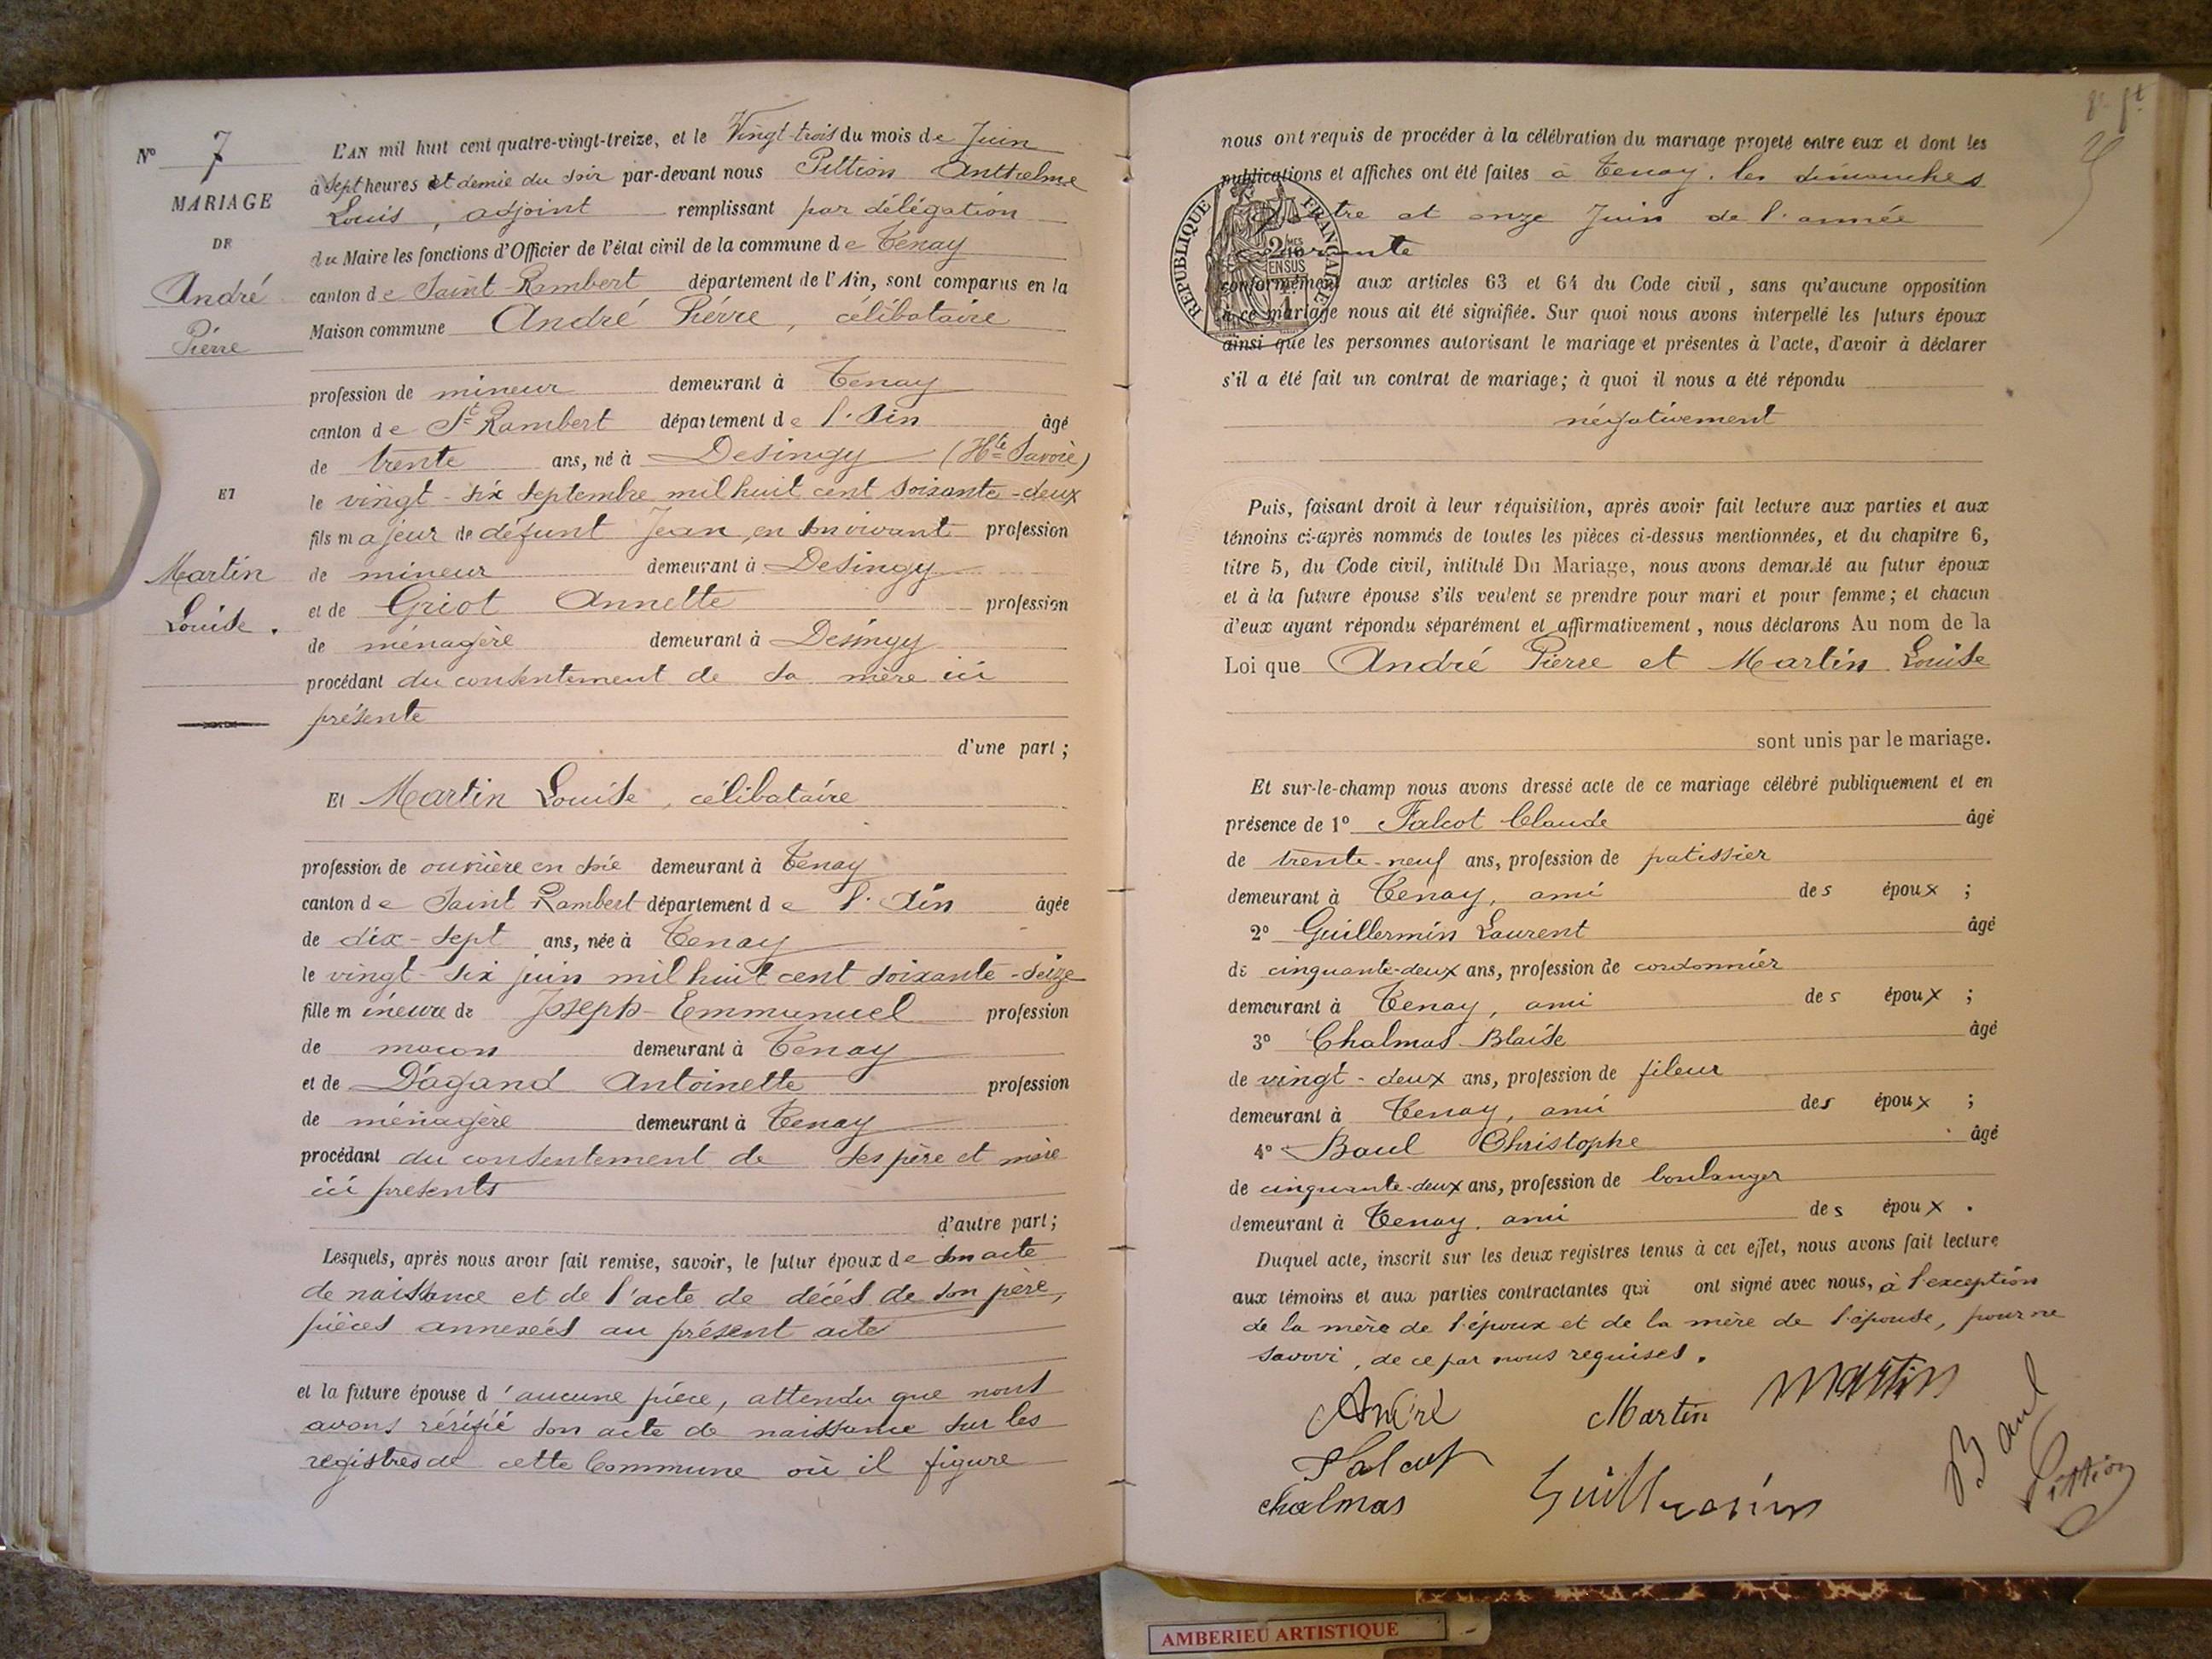 N° 7
MARIAGE
DE
André
Pierre
ET
Martin
Louise.
L'AN mil huit cent quatre-vingt-treize, et le Vingt-trois du mois de Juin
à Sept heures et demie du soir par-devant nous Pittion Anthelme
Louis, adjoint remplissant par délégation
du Maire les fonctions d'Officier de l'état civil de la commune de Tenay
canton de Saint-Rambert département de l'Ain, sont comparus en la
Maison commune André Pierre, célibataire
profession de mineur demeurant à Tenay
canton de St Rambert département de l'Ain âgé
de trente ans, né à Desingy (Hte Savoie)
le vingt-six septembre mil huit cent soixante-deux
fils majeur de défunt Jean, en son vivant profession
de mineur demeurant à Desingy
et de Griot Annette profession
de ménagère demeurant à Desingy
procédant du consentement de sa mère ici
présente
d'une part;
Et Martin Louise, célibataire
profession de ouvrière en soie demeurant à Tenay
canton de Saint Rambert département de l'Ain âgée
de dix-sept ans, née à Tenay
le vingt-six juin mil huit cent soixante-seize
fille mineure de Joseph-Emmanuel profession
de maçon demeurant à Tenay
et de Dagand Antoinette profession
de ménagère demeurant à Tenay
procédant du consentement de ses père et mère
ici présents
d'autre part;
Lesquels, après nous avoir fait remise, savoir, le futur époux de son acte
de naissance et de l'acte de décès de son père,
pièces annexées au présent acte
et la future épouse d'aucune pièce, attendu que nous
avons vérifié son acte de naissance sur les
registres de cette Commune où il figure
nous ont requis de procéder à la célébration du mariage projeté entre eux et dont les
publications et affiches ont été faites à Tenay, les dimanches
quatre et onze Juin de l'année
courante
RÉPUBLIQUE FRANÇAISE
2/10MES
EN SUS
conformément aux articles 63 et 64 du Code civil, sans qu'aucune opposition
à ce mariage nous ait été signifiée. Sur quoi nous avons interpellé les futurs époux
ainsi que les personnes autorisant le mariage et présentes à l'acte, d'avoir à déclarer
s'il a été fait un contrat de mariage; à quoi il nous a été répondu
négativement
Puis, faisant droit à leur réquisition, après avoir fait lecture aux parties et aux
témoins ci-après nommés de toutes les pièces ci-dessus mentionnées, et du chapitre 6,
titre 5, du Code civil, intitulé Du Mariage, nous avons demandé au futur époux
et à la future épouse s'ils veulent se prendre pour mari et pour femme; et chacun
d'eux ayant répondu séparément et affirmativement, nous déclarons Au nom de la
Loi que André Pierre et Martin Louise
sont unis par le mariage.
Et sur-le-champ nous avons dressé acte de ce mariage célébré publiquement et en
présence de 1° Falcot Claude âgé
de trente-neuf ans, profession de patissier
demeurant à Tenay, ami des époux ;
2° Guillermin Laurent âgé
de cinquante-deux ans, profession de cordonnier
demeurant à Tenay, ami des époux ;
3° Chalmas Blaise âgé
de vingt-deux ans, profession de fileur
demeurant à Tenay, ami des époux ;
4° Baul Christophe âgé
de cinquante-deux ans, profession de boulanger
demeurant à Tenay, ami des époux.
Duquel acte, inscrit sur les deux registres tenus à cet effet, nous avons fait lecture
aux témoins et aux parties contractantes qui ont signé avec nous, à l'exception
de la mère de l'époux et de la mère de l'épouse, pour ne
savoir, de ce par nous requises.
André Martin Martin
Falcot Baul
Chalmas Guillermin Pittion
AMBERIEU ARTISTIQUE